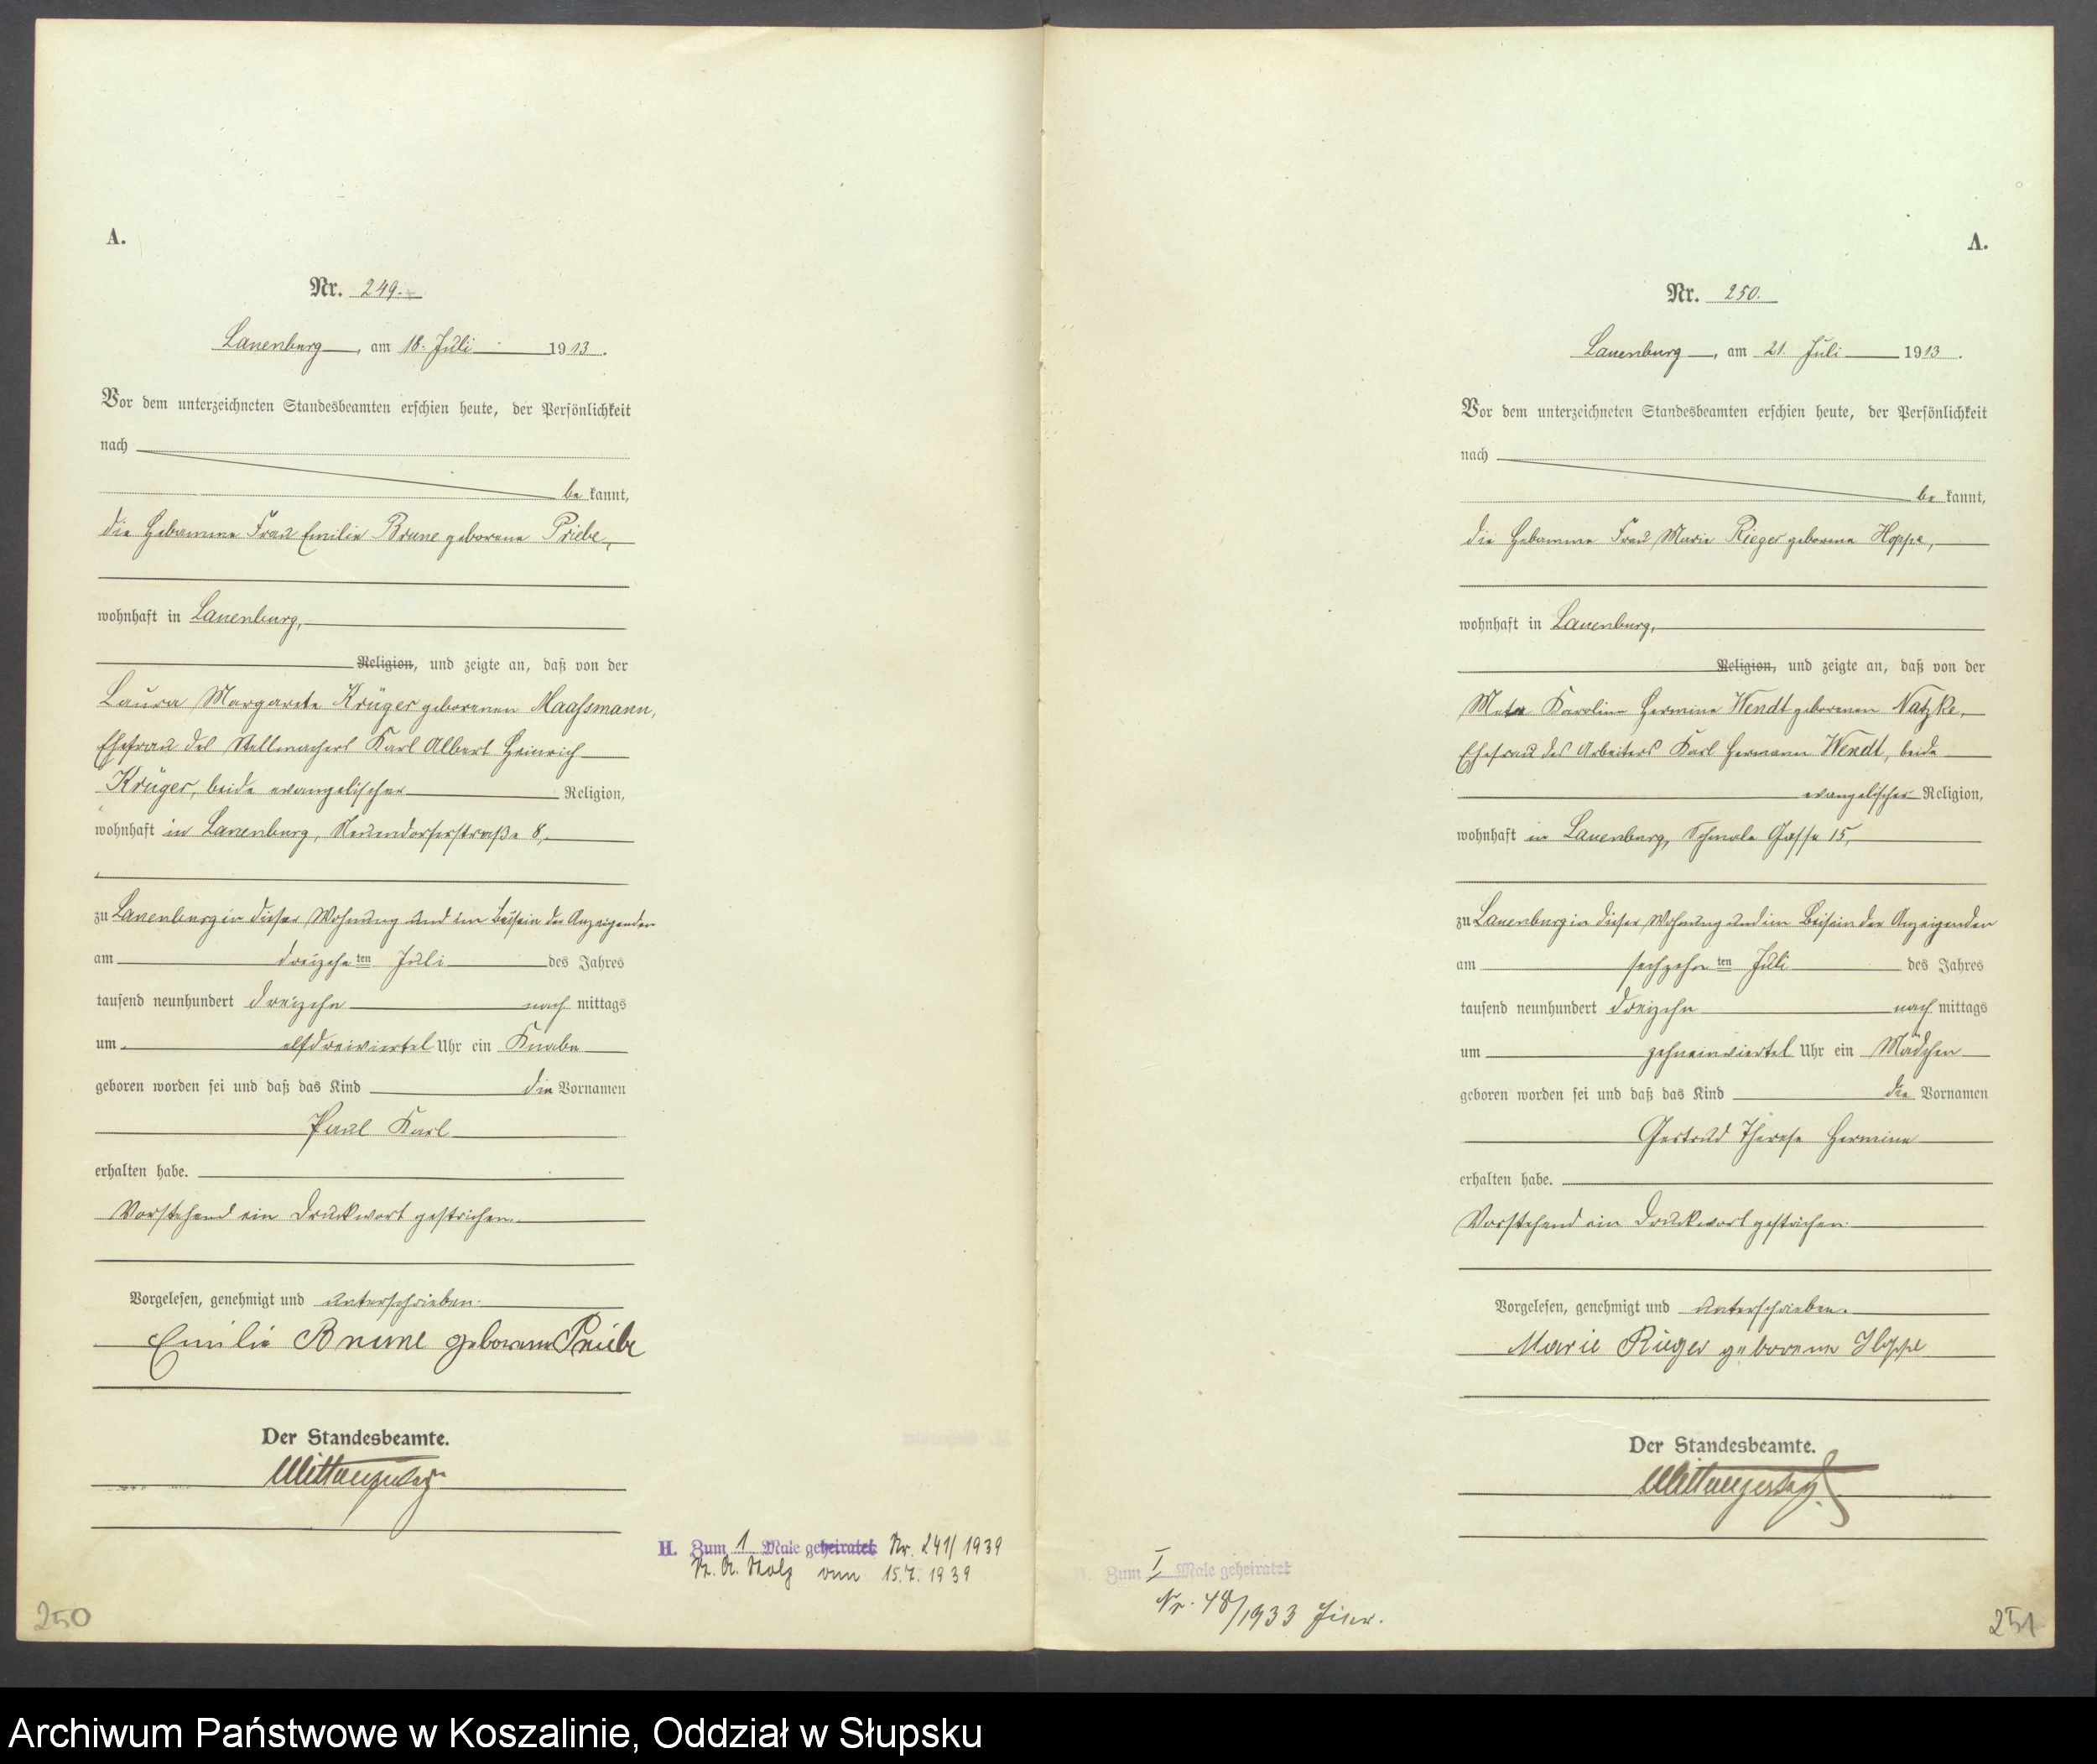 A.
Nr. 249.
Lauenburg, am 18. Juli 1913.
Vor dem unterzeichneten Standesbeamten erschien heute, der Persönlichkeit
nach
bekannt,
die Hebamme Frau Emilie Brune geborene Priebe,
wohnhaft in Lauenburg,
Religion, und zeigte an, daß von der
Laura Margarete Krüger geborenen Maassmann,
Ehefrau des Stellmachers Karl Albert Heinrich
Krüger, beide evangelischer Religion,
wohnhaft in Lauenburg, Neuendorferstraße 8,
zu Lauenburg in dieser Wohnung und im Beisein der Anzeigenden
am dreizehnten Juli des Jahres
tausend neunhundert dreizehn nachmittags
um elfdreiviertel Uhr ein Knabe
geboren worden sei und daß das Kind die Vornamen
Paul Karl
erhalten habe.
Vorstehend ein Druckwort gestrichen.
Vorgelesen, genehmigt und unterschrieben.
Emilie Brune geborene Priebe
Der Standesbeamte.
H. Zum 1 Male geheiratet Nr. 241/1939
vom 15.7.1939
250
A.
Nr. 250.
Lauenburg, am 21. Juli 1913.
Vor dem unterzeichneten Standesbeamten erschien heute, der Persönlichkeit
nach
bekannt,
die Hebamme Frau Marie Rieger geborene Hoppe,
wohnhaft in Lauenburg,
Religion, und zeigte an, daß von der
Meta Karoline Hermine Wendt geborenen Natzke,
Ehefrau des Arbeiters Karl Hermann Wendt, beide
evangelischer Religion,
wohnhaft in Lauenburg, Schmale Gasse 15,
zu Lauenburg in dieser Wohnung und im Beisein der Anzeigenden
am sechzehnten Juli des Jahres
tausend neunhundert dreizehn nachmittags
um zehneinviertel Uhr ein Mädchen
geboren worden sei und daß das Kind die Vornamen
Gertrud Therese Hermine
erhalten habe.
Vorstehend ein Druckwort gestrichen.
Vorgelesen, genehmigt und unterschrieben.
Marie Rieger geborene Hoppe
Der Standesbeamte.
H. Zum I Male geheiratet
Nr. 48/1933 hier.
251
Archiwum Państwowe w Koszalinie, Oddział w Słupsku